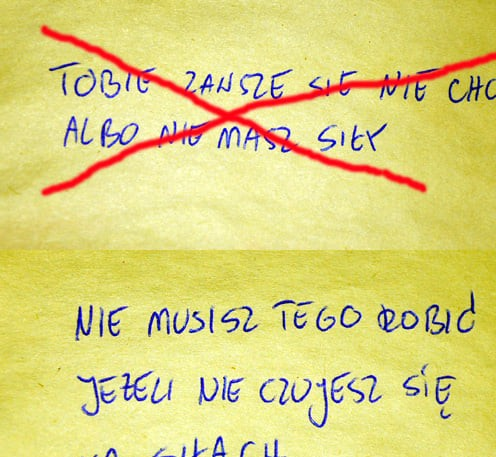 TOBIE ZAWSZE SIĘ NIE CHC
ALBO NIE MASZ SIŁY
NIE MUSISZ TEGO ROBIĆ
JEŻELI NIE CZUJESZ SIĘ
NA SIŁACH